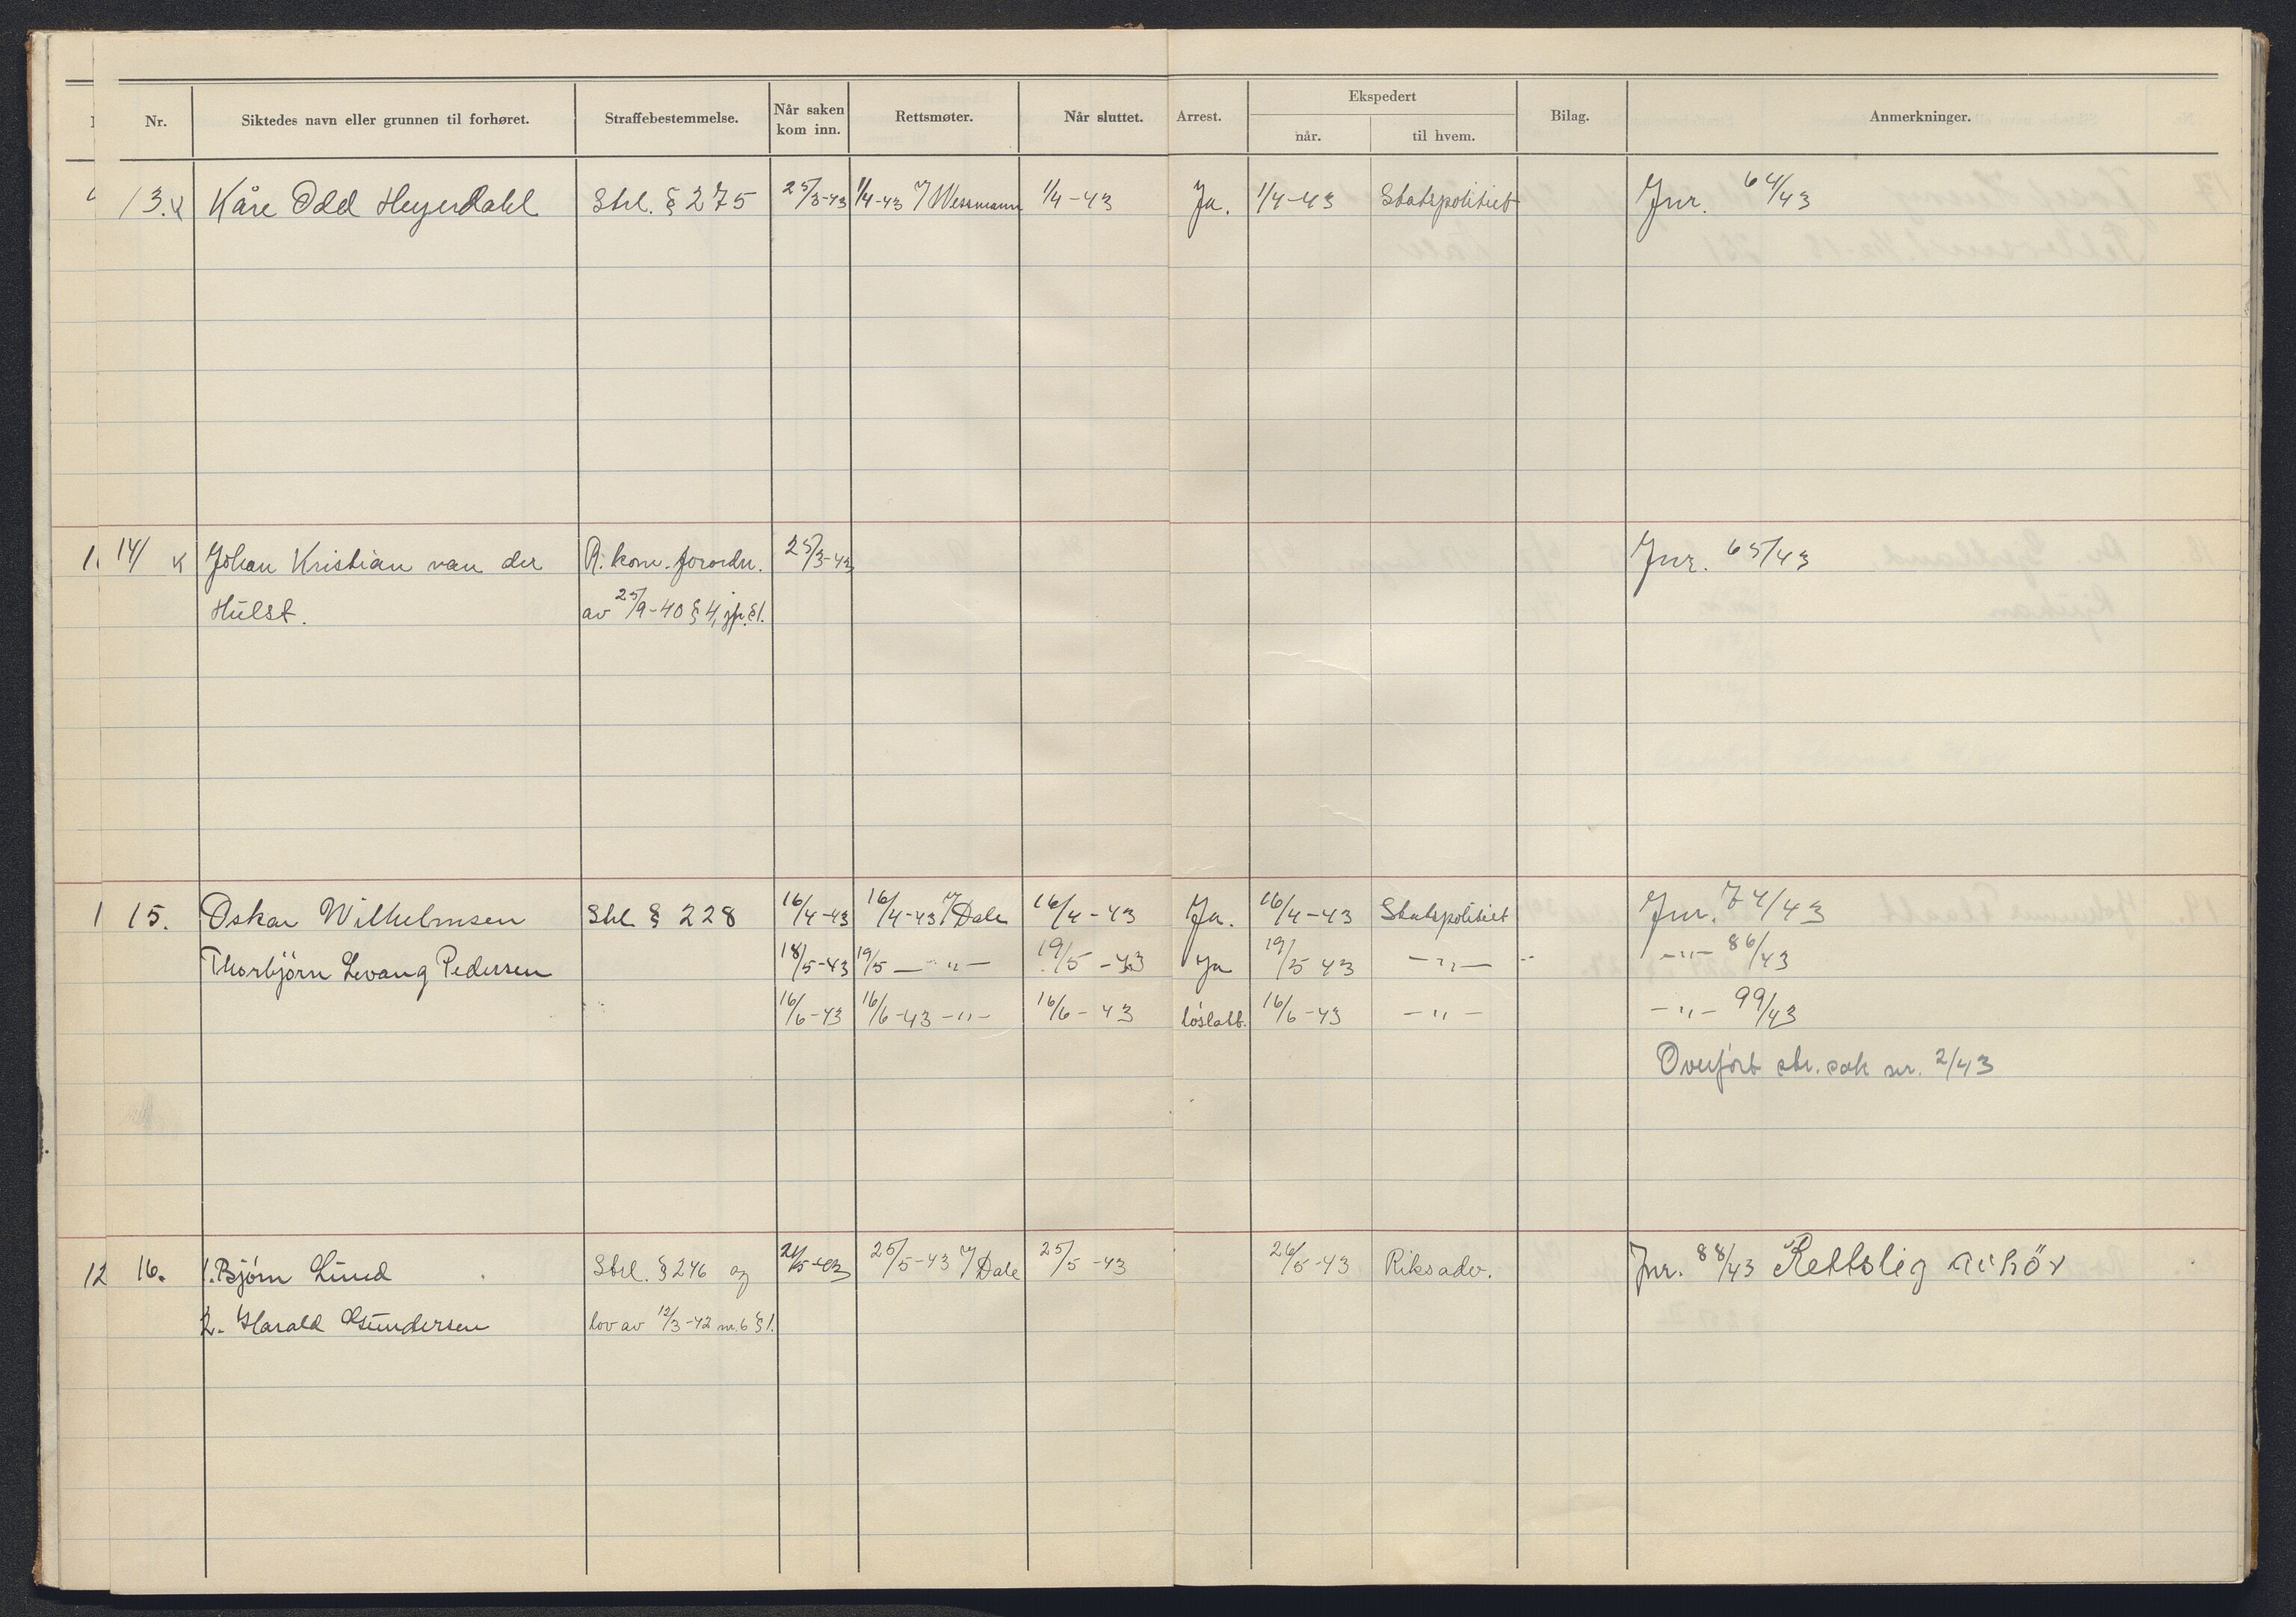 Nr. Siktedes navn eller grunnen til forhøret. Straffebestemmelse. Når saken kom inn. Rettsmøter. Når sluttet. Arrest. Ekspedert når. til hvem. Bilag. Anmerkninger.
13. Kåre Odd Heyerdahl Strl. § 275 25/3-43 1/4-43 v/ Wessmann 1/4-43 Ja. 1/4-43 Statspolitiet Jnr. 64/43
14/ Johan Kristian van der R. kom. forordn. 25/3-43 Jnr. 65/43
Hulst. av 25/9-40 § 4, jfr. § 1.
15. Oskar Wilhelmsen Strl § 228 16/4-43 16/4-43 v/ Dale 16/4-43 Ja. 16/4-43 Statspolitiet Jnr. 74/43
Thorbjörn Levang Pedersen 18/5-43 19/5 -"- 19/5-43 Ja 19/5 43 -"- -"- 86/43
16/6-43 16/6-43 -"- 16/6-43 löslatt. 16/6-43 -"- -"- 99/43
Overfört str. sak nr. 2/43
12 16. 1. Bjørn Lund Strl. § 246 og 25/5-43 v/ Dale 25/5-43 26/5-43 Riksadv. Jnr. 88/43 Rettslig avhör
2. Harald Gundersen lov av 12/3-42 nr. 6 § 1.